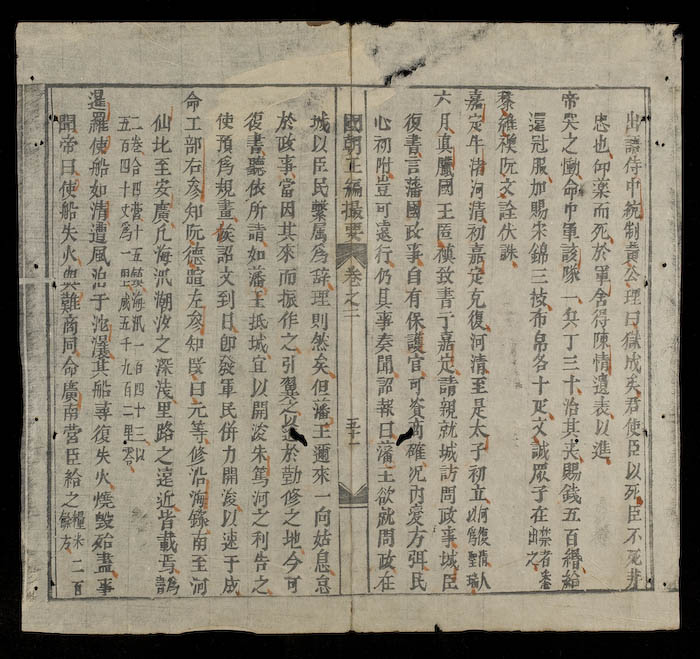 出語侍中統制黃公理曰獄成矣君使臣以死臣不死非
忠也仰藥而死於軍舍得陳情遺表以進
帝哭之慟命中軍該隊一兵丁三十治其喪賜錢五百緡給
還冠服加賜宋錦三枝布帛各十疋文誠眾子在禁者
釋之
嘉定牛渚河清初嘉定克復河清至是太子初立河復清人以爲聖瑞
六月真臘國王匿禛致書于嘉定請親就城訪問政事城臣
復書言藩國政事自有保護官可資商確況內憂方弭民
心初附豈可遠行仍具事奏聞詔報曰藩王欲就問政在
國朝正編撮要 卷之二 五十一
城以臣民繫属爲辞理則然矣但藩王邇來一向姑息怠
於政事當因其來而振作之引翼之以進於勤修之地今可
復書聽依所請如藩王抵城宜以開浚朱篤河之利告之
使預爲規畫俟詔文到日即發軍民併力開浚以速于成
命工部右参知阮德暄左参知阮曰元等修沿海錄南至河
仙北至安廣凡海汛潮汐之深浅里路之遠近皆載焉
二卷合四營十五鎮海汛一百四十三以
五百四十丈爲一里成五千九百二里零
暹羅使船如清遭風泊于沱㶞其船尋復失火燒毀殆盡事
聞帝曰使船失火與難商同命廣南營臣給之糧米二百